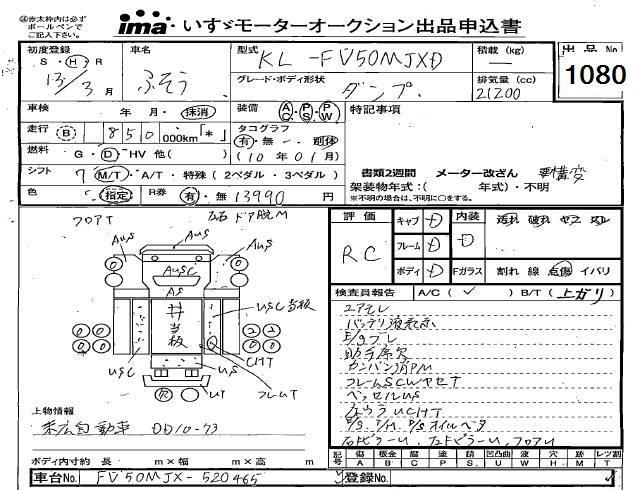 ④赤太枠内は必ず
ボールペンで
ご記入下さい。
ima いすゞモーターオークション出品申込書
初度登録 車名 型式 KL-FV50MJXD 積載(kg) 出品No
S・H・R ふそう グレード・ボディ形状 ー 1080
13/3月 ダンプ 排気量(cc)
21200
車検 年 月・抹消 装備 AC・PS・PW 特記事項
走行 B 1850,000km「*」 タコグラフ
有・無 別体
燃料 G・D・HV 他( ) (10年01月)
シフト 7 M/T・A/T・特殊(2ペダル・3ペダル) 書類2週間 メーター改ざん 要構変
架装物年式:( 年式)・不明
色 指定 R券 有・無 13990円 ※不明の場合は、不明に○をする。
フロアT 左右ドア脱M
評価 キャブ D 内装 汚れ 破れ ヤニ
RC フレーム D D
ボディ D Fガラス 割れ 線 点傷 イバリ
AuS AuS
AuSC
AS
検査員報告 A/C(✓) B/T(上ガリ)
エアモレ
USC当板
井当板
バッテリ液表示
E/gブレ
助手席欠
CHT
カンバン消PM
USC US フレームT
フレームSCWヤセT
UT
ベッセルUS
UCHT
上物情報
P/S. T/M. P/Sオイルベタ
末広自動車 DD10-73
ボディ内寸約 長 m×幅 m×高 m
記号 傷A 板金B 腐C 塗P 錆S 凹凸曲U 波W 穴H 跡M レツ割T
車台No FV50MJX-520465 登録No